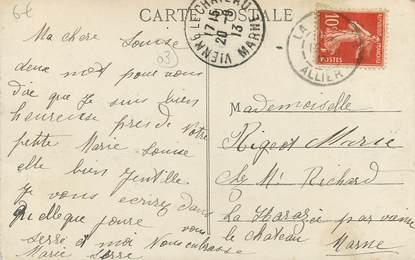 6e
CARTE POSTALE
VIENNE LE CHATEAU
MARNE
17 15
20 -9
13
03
LA
ALLIER
10
POSTES
Ma chere Louise
deux mot pour vous
dire que Je suis bien
heureuse pres de Votre
petite Marie Louise
elle bien Jentille
Je vous ecrirez dans
quelque joure vous
serré et moi Nous
Marie Serre
Mademoiselle
Rigeot Marie
che Mr Richard
La Harazée par vienne
le chateau Marne